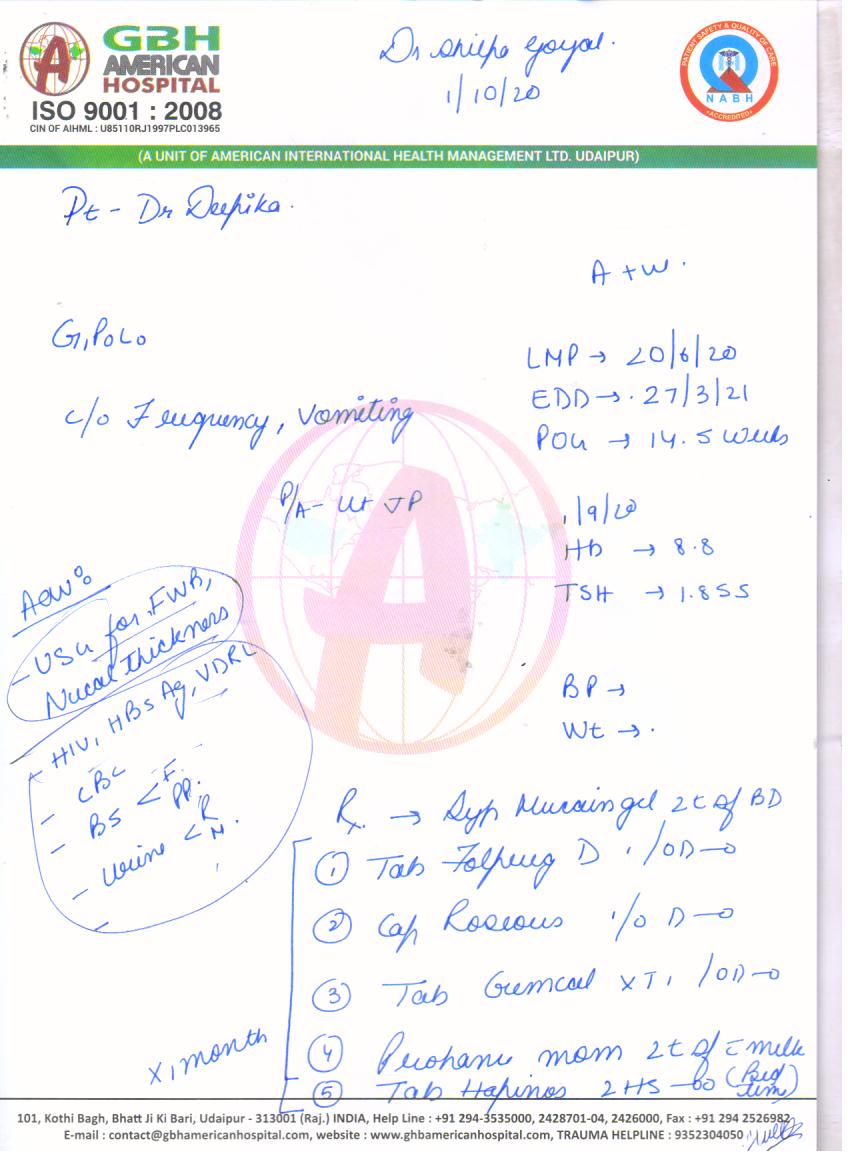 GBH
AMERICAN
HOSPITAL
ISO 9001 : 2008
CIN OF AIHML : U85110RJ1997PLC013965
Dr Shilpa Goyal.
1/10/20
PATIENT SAFETY & QUALITY OF CARE
NABH
ACCREDITED
(A UNIT OF AMERICAN INTERNATIONAL HEALTH MANAGEMENT LTD. UDAIPUR)
Pt - Dr Deepika.
A + W.
G1P0L0
LMP → 20/6/20
EDD → 27/3/21
POG → 14.5 weeks
c/o Frequency, Vomiting
P/A - Ut JP
1/9/20
Hb → 8.8
TSH → 1.855
BP →
Wt → .
Adv:
- USG for FWB,
Nucal thickness
- HIV, HBsAg, VDRL
- CBC
- BS < F. PP.
- Urine < R M.
Rx → Syp Mucaingel 2tsf BD
① Tab D 1/OD
② Cap 1/OD
③ Tab Gemcal XT 1/OD
④ mom 2tsf c milk
⑤ Tab 2 HS (Bed time)
x 1 month
101, Kothi Bagh, Bhatt Ji Ki Bari, Udaipur - 313001 (Raj.) INDIA, Help Line : +91 294-3535000, 2428701-04, 2426000, Fax : +91 294 2526982
E-mail : contact@gbhamericanhospital.com, website : www.gbhamericanhospital.com, TRAUMA HELPLINE : 9352304050